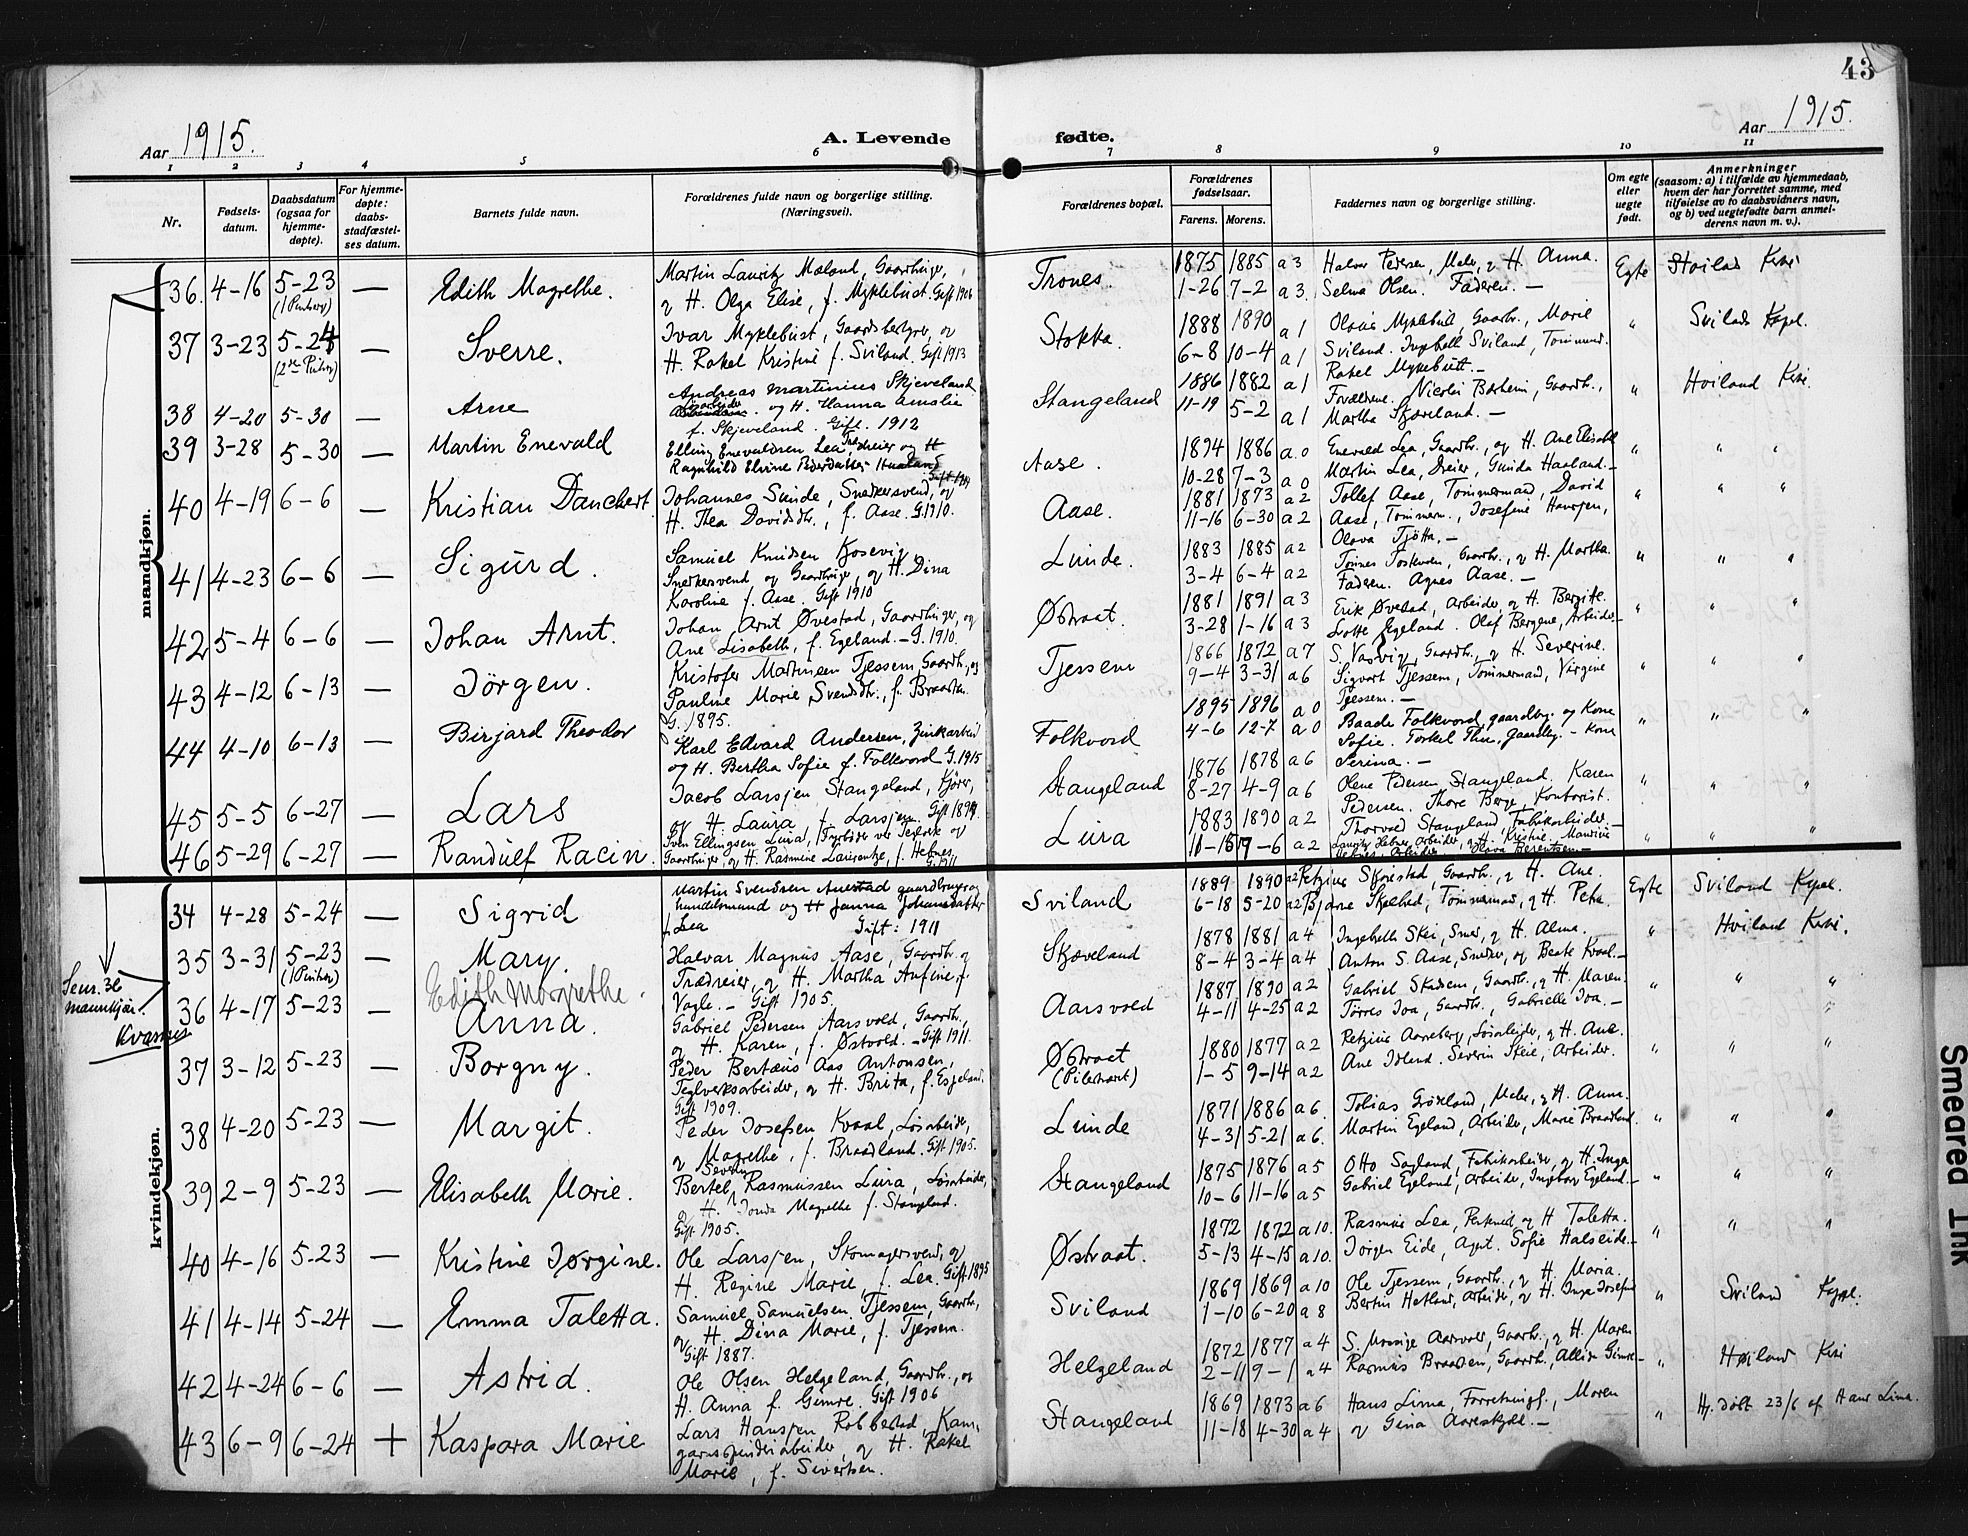 43
Aar 1915.
A. Levende
fødte.
Aar 1915.
1 2 3 4 5 6 7 8 9 10 11
Nr.
Fødsels-
datum.
Daabsdatum
(ogsaa for
hjemme-
døpte).
For hjemme-
døpte:
daabs-
stadfæstel-
ses datum.
Barnets fulde navn.
Forældrenes fulde navn og borgerlige stilling.
(Næringsvei).
Forældrenes bopæl.
Forældrenes
fødselsaar.
Farens. Morens.
Faddernes navn og borgerlige stilling.
Om egte
eller
uegte
født.
Anmerkninger
(saasom: a) i tilfælde av hjemmedaab,
hvem der har forrettet samme, med
tilføielse av to daabsvidners navn,
og b) ved uegtefødte barn anmel-
derens navn m. v.).
mandkjøn.
36. 4-16 5-23 — Edith Magrethe.
Martin Lauritz Maland, Gaardbruger,
og H. Olga Elise, f. Myklebust. Gift 1906
Trones. 1875 1885 a 3 Halvor Pedersen, Maler, og H. Anna. Egte
1-26 7-2 a 3 Selma Olsen. Faderen. —
37 3-23 5-24 — Sverre.
Ivar Myklebust, Gaardsbestyrer, og
H. Rakel Kristine f. Sviland. Gift 1913
Stokka. 1888 1890 a 1
6-8 10-4 a 1 Sviland. Ingeb. Sviland, Tømmerm.
Rakel Myklebust. —
38 4-20 5-30 — Arne
Andreas Martinius Skjeveland
og H. Hanna Amalie
f. Skjeveland. Gift. 1912
Stangeland 1886 1882 a 1 Forældrene. Nicolai Bærheim, Gaardb., " Høiland Kirke.
11-19 5-2 a 1 Martha Skjæveland. —
39 3-28 5-30 — Martin Enevald
Elling Enevaldsen Lea, Trædreier og H
Ragnhild Elvine Pedersdatter Haaland
Aase. 1894 1886 a 0 Enevald Lea, Gaardb., og H. Ane Elisabet " " "
10-28 7-3 a 0 Martin Lea, Dreier, Gunda Haaland. —
40 4-19 6-6 — Kristian Danchert.
Johannes Sunde, Snedkersvend, og
H. Thea Davidsdtr., f. Aase. G. 1910.
Aase. 1881 1873 a 2 Tollef Aase, Tømmermand, David " " "
11-16 6-30 a 2 Aase, Tømmerm., Josefine Hansen,
Olava Tjøtta. —
41 4-23 6-6 — Sigurd.
Samuel Knudsen Kjosevig,
Snedkersvend og Gaardbruger, og H. Dina
Karoline f. Aase. Gift 1910
Lunde. 1883 1885 a 2 " " "
3-4 6-4 a 2 Faderen. Agnes Aase. —
42 5-4 6-6 — Johan Arnt.
Johan Arnt Øvestad, Gaardbruger, og
Ane Lisabeth, f. Egeland. — G. 1910.
Østraat. 1881 1891 a 3 Erik Øvestad, Arbeider, og H. Bergite. " " "
3-28 1-16 a 3 Lotte Egeland. Olaf Bergene, Arbeider —
43 4-12 6-13 — Jörgen.
Kristofer Martinsen Tjessem, Gaardb., og
Pauline Marie Svendsdtr., f. Braasten.
G. 1895.
Tjessem 1866 1872 a 7 S. Vasvig, Gaardb., og H. Severine. " " "
9-4 3-31 a 6 Sigvart Tjessem, Tømmermand, Virgine
Tjessem. —
44 4-10 6-13 — Birjard Theodor
Karl Edvard Andersen, Zinkarbeid
og H. Bertha Sofie f. Folkvord G. 1915
Folkvord 1895 1896 a 0 Baade Folkvord, gaardbr. og Kone " " "
4-6 12-7 a 0 Sofie. Torkel Thu, gaardbr. – Kone
Serina. —
45 5-5 6-27 — Lars
Jacob Larsen Stangeland, Kjører,
og H. Laura f. Larsen.
Stangeland 1876 1878 a 6 Olene Pedersen Stangeland. Karen " " "
8-27 4-9 a 6 Pedersen. Thore Berge, Kontorist.
Thorvald Stangeland, Fabrikarbeider. —
46 5-29 6-27 — Randulf Racin.
Sven Ellingsen Lura,
Gaardbruger, og H. Rasmine Laurentze, f. Hetnes
G. 1911
Lura 1883 1890 a 2 " " "
a 2
kvindekjøn.
34 4-28 5-24 — Sigrid
Martin Svendsen Auestad gaardbruger og
handelsmand og H Janna Johansdatter
f. Lea Gift: 1911
Sviland 1889 1890 a 2 Retzius Skjørestad, Gaardb., og H. Ane. Egte Sviland Kapel.
6-18 5-20 a 2 Bjarne Skjelbred, Tømmermand, og H. Petra.
35 3-31 5-23 — Mary.
Halvar Magnus Aase, Gaardb. og
Trædreier, og H. Martha Aufine, f.
Vagle. — Gift 1905.
Skjæveland 1878 1881 a 4 Ingebreth Skei, Smed, og H. Alma. " Høiland Kirke.
8-4 3-4 a 4 Anton S. Aase, Snedker, og Beate Kvaal. —
Senr. 36
mannkjøn.
Kvarnes
Edith Margrethe.
36 4-17 5-23 — Anna.
Gabriel Pedersen Aarsvold, Gaardb.,
og H. Karen, f. Østvold. — Gift 1911.
Aarsvold 1887 1890 a 2 Gabriel Skadsem, Gaardb., og H. Maren. " " "
4-11 4-25 a 2 Tørres Joa, Gaardb., Gabrielle Joa. —
37 3-12 5-23 — Borgny.
Peder Bertæus Aas Antonsen,
Teglverksarbeider, og H. Brita, f. Espeland.
Gift 1909.
Østraat 1880 1877 a 2 " " "
1-5 9-14 a 2 Severin Skeie, Arbeider.
38 4-20 5-23 — Margit.
Peder Josefsen Kvaal, Løsarbeider,
og Magrethe, f. Braadland. Gift 1905.
Lunde 1871 1886 a 6. Tobias Grødeland, Maler, og H. Anna. " " "
4-31 5-21 a 6. Martin Egeland, Arbeider, Marie Braadland.
39 2-9 5-23 — Elisabeth Marie.
Severin
Bertel Rasmussen Lura, Løsarbeider,
og H. Magrethe f. Stangeland.
Gift 1905.
Stangeland 1875 1876 a 5 Otto Sagland, Fabrikarbeider, og H. Inga " " "
10-6 11-16 a 5 Gabriel Egeland, Arbeider, Ingeborg Egeland. —
40 4-16 5-23 — Kristine Jørgine.
Ole Larsen, Skomagersvend, og
H. Regine Marie, f. Lea. Gift 1895
Østraat. 1872 1872 a 10. Rasmus Lea, og H Taletta. " " "
5-13 4-15 a 10. Jørgen Eide, Agent. Sofie Halseide. —
41 4-14 5-24 — Emma Taletta.
Samuel Samuelsen Tjessem, Gaardb.,
og H. Dina Marie, f. Tjessem.
Gift 1887.
Sviland 1869 1869 a 10 Ole Tjessem, Gaardb., og H. Maria. " Sviland Kapel.
1-10 6-20 a 8 Bertin Hetland, Arbeider, og H. Inga Josefine
42 4-24 6-6 — Astrid.
Ole Olsen Helgeland, Gaardb., og
H. Anna f. Gimre. Gift 1906
Helgeland 1872 1877 a 4 " Høiland Kirke
2-11 9-1 a 4 Rasmus Braasten, Gaardb.,
43 6-9 6-24 + Kaspara Marie
Lars Hansen Robberstad, Kam-
garnspinderiarbeider, og H. Rakel
Marie, f. Sivertsen.
Stangeland 1869 1873 a 6 Hans Lima, Forretningsf., Maren " Hj. døbt 23/6 af Hans Lima.
11-18 4-30 a 4 og Gina Aareskjold. —
Smeared Ink